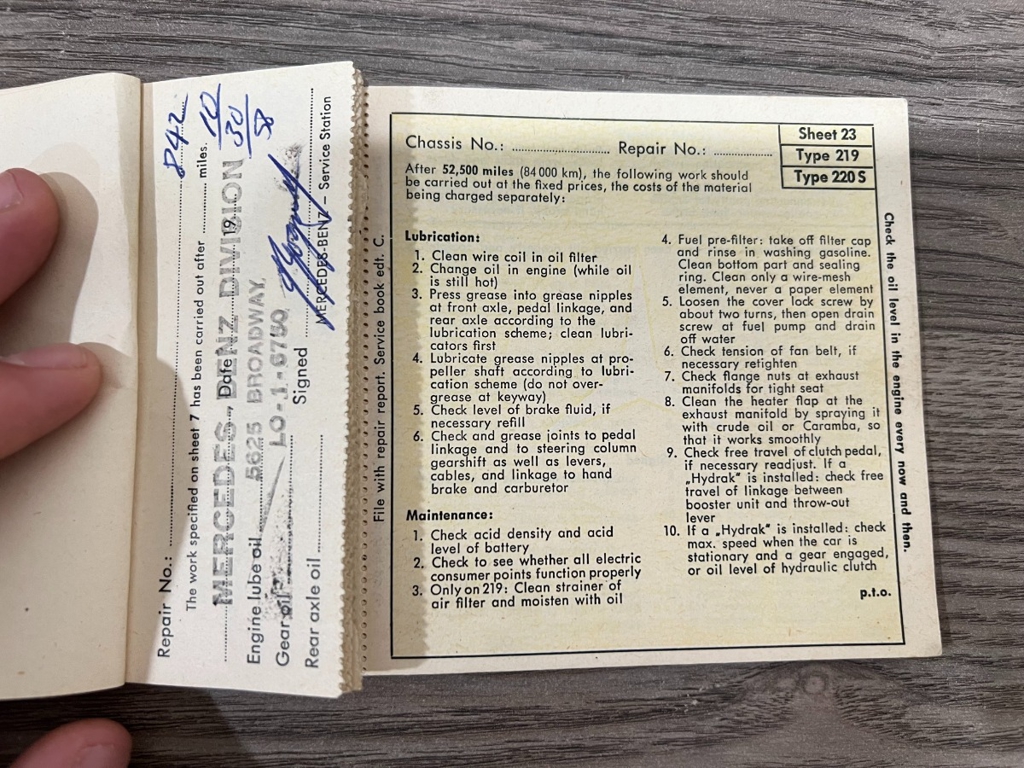 Repair No.:
842
The work specified on sheet 7 has been carried out after miles.
10
30
8
MERCEDES BENZ DIVISION
Date 19
Engine lube oil
5625 BROADWAY,
Gear oil
LO-1-6750
Signed
MERCEDES-BENZ – Service Station
Rear axle oil
File with repair report. Service book edt. C.
Chassis No.: Repair No.:
Sheet 23
Type 219
Type 220 S
After 52,500 miles (84 000 km), the following work should
be carried out at the fixed prices, the costs of the material
being charged separately:
Lubrication:
1. Clean wire coil in oil filter
2. Change oil in engine (while oil
is still hot)
3. Press grease into grease nipples
at front axle, pedal linkage, and
rear axle according to the
lubrication scheme; clean lubri-
cators first
4. Lubricate grease nipples at pro-
peller shaft according to lubri-
cation scheme (do not over-
grease at keyway)
5. Check level of brake fluid, if
necessary refill
6. Check and grease joints to pedal
linkage and to steering column
gearshift as well as levers,
cables, and linkage to hand
brake and carburetor
Maintenance:
1. Check acid density and acid
level of battery
2. Check to see whether all electric
consumer points function properly
3. Only on 219: Clean strainer of
air filter and moisten with oil
4. Fuel pre-filter: take off filter cap
and rinse in washing gasoline.
Clean bottom part and sealing
ring. Clean only a wire-mesh
element, never a paper element
5. Loosen the cover lock screw by
about two turns, then open drain
screw at fuel pump and drain
off water
6. Check tension of fan belt, if
necessary retighten
7. Check flange nuts at exhaust
manifolds for tight seat
8. Clean the heater flap at the
exhaust manifold by spraying it
with crude oil or Caramba, so
that it works smoothly
9. Check free travel of clutch pedal,
if necessary readjust. If a
„Hydrak" is installed: check free
travel of linkage between
booster unit and throw-out
lever
10. If a „Hydrak" is installed: check
max. speed when the car is
stationary and a gear engaged,
or oil level of hydraulic clutch
p.t.o.
Check the oil level in the engine every now and then.